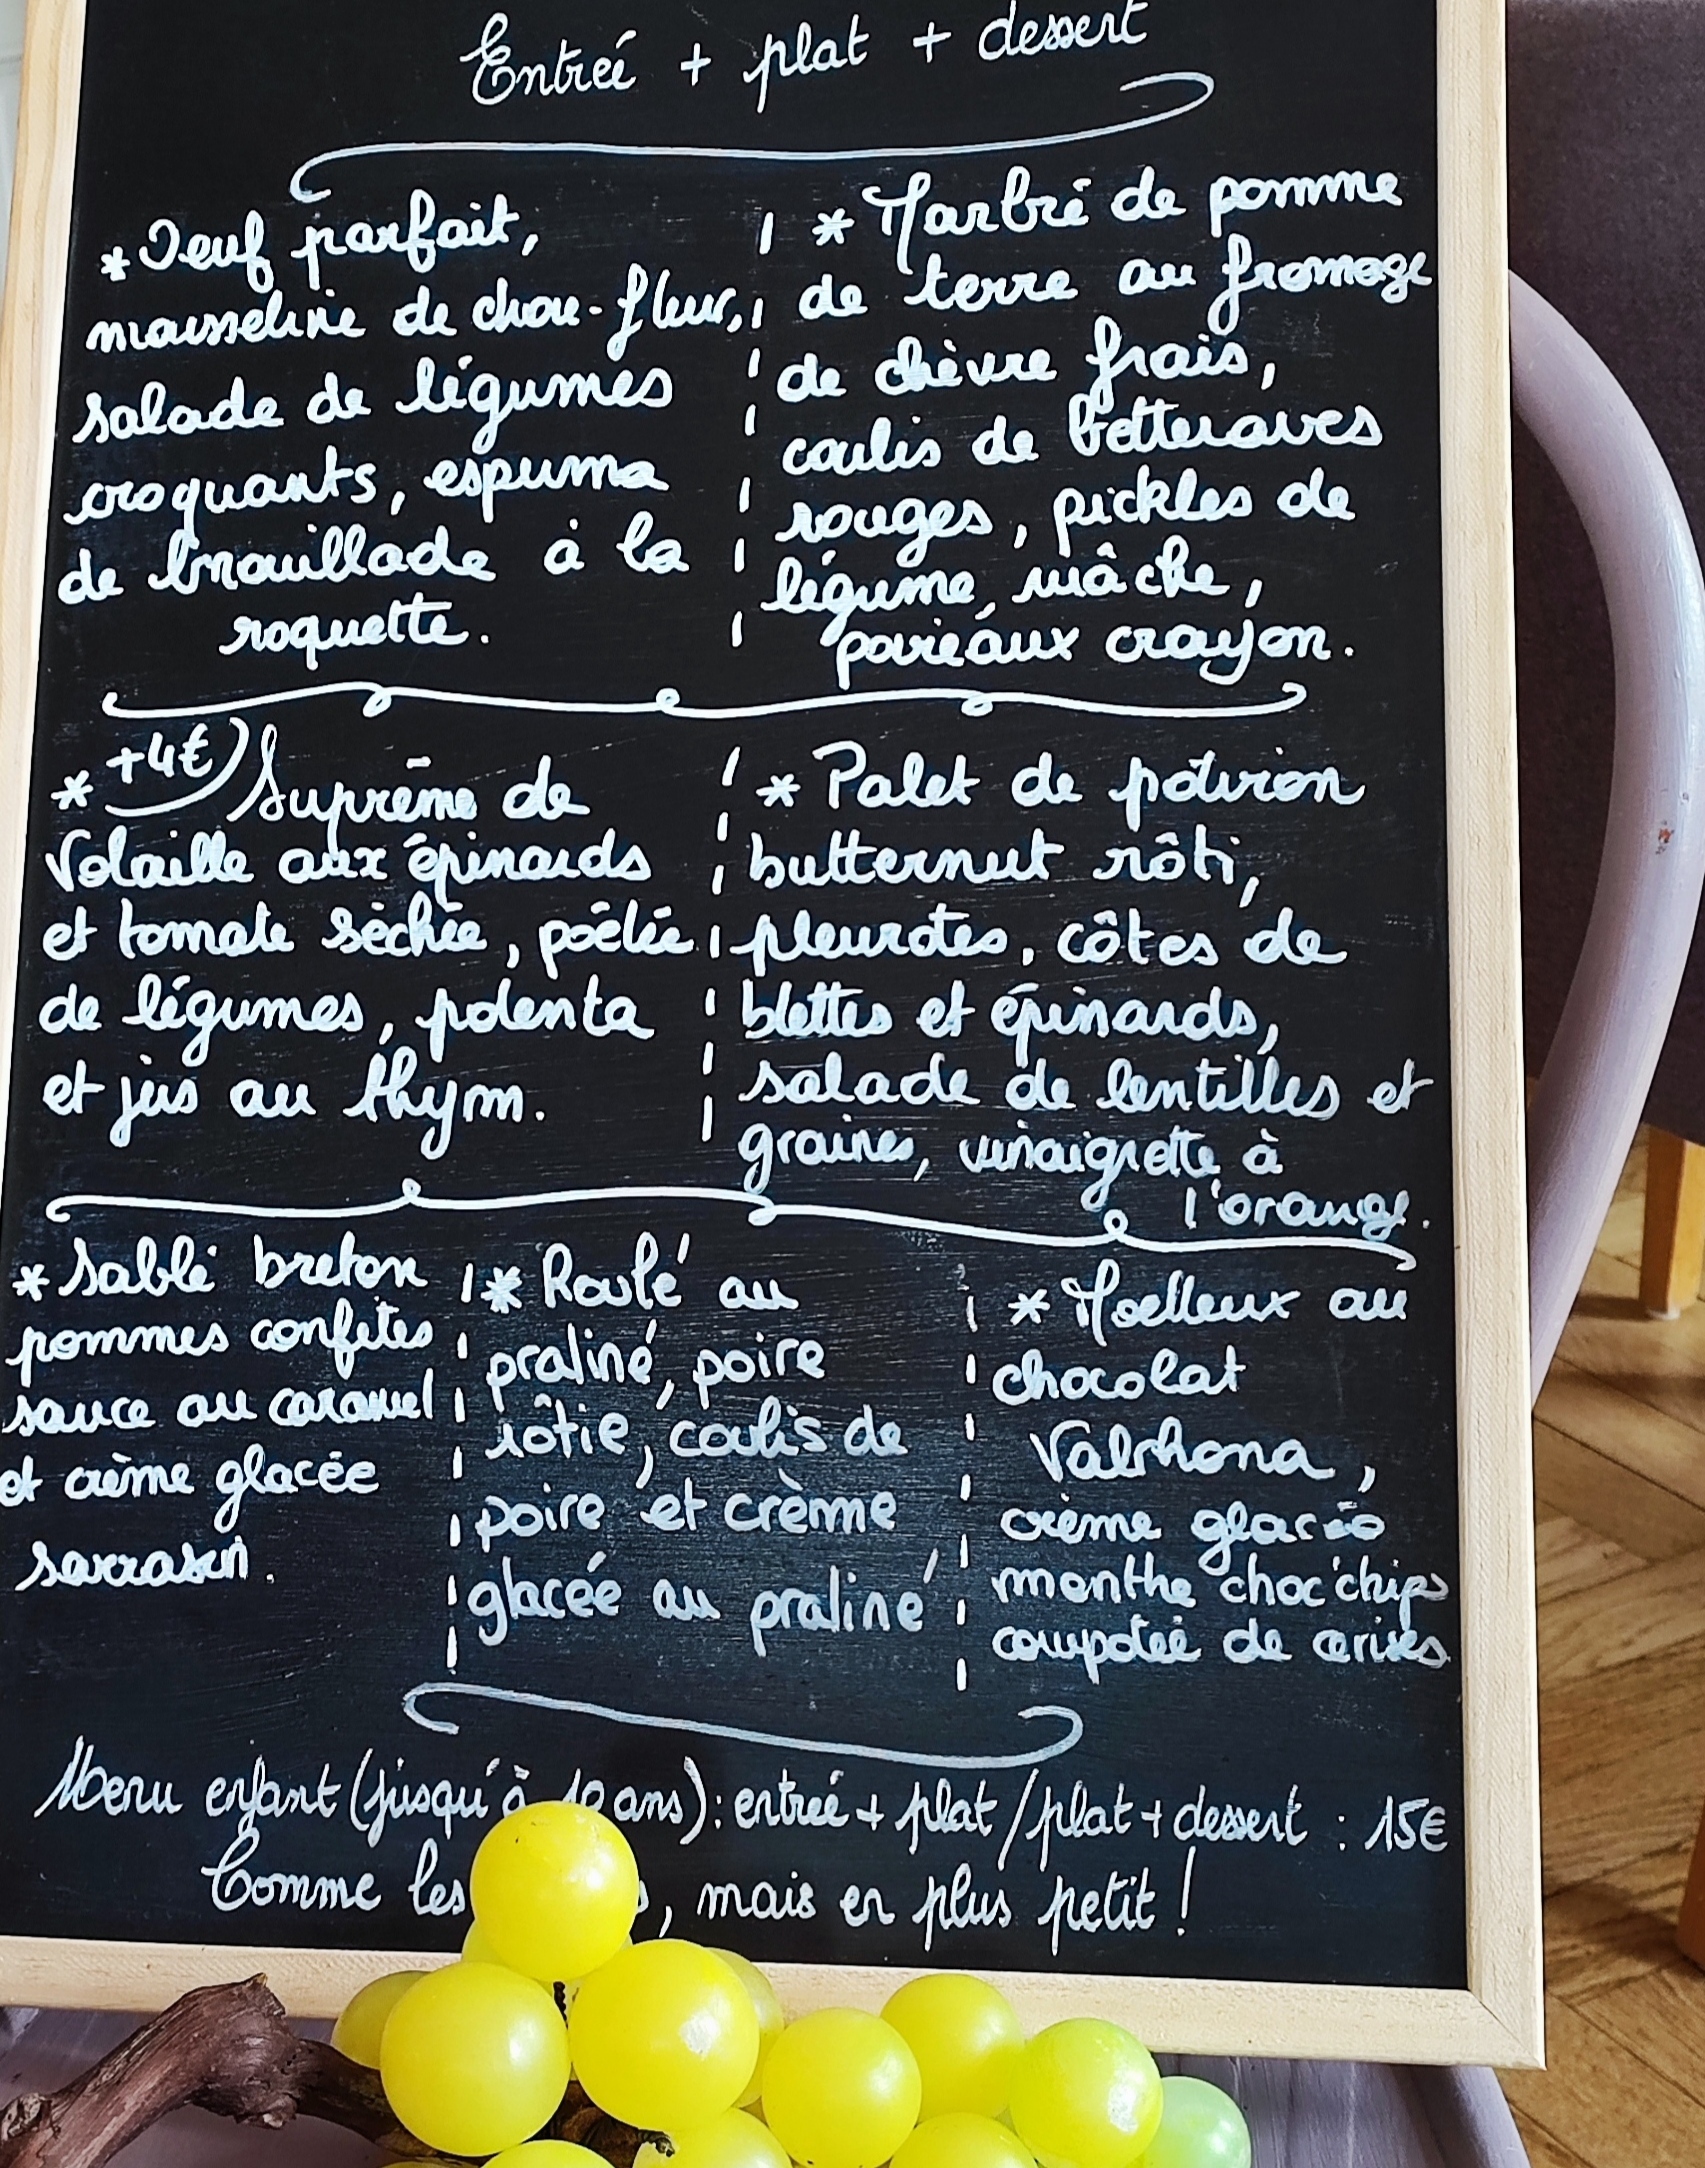 Entrée + plat + dessert
* Oeuf parfait,
mousseline de chou-fleur,
salade de légumes
croquants, espuma
de brouillade à la
roquette.
* Marbré de pomme
de terre au fromage
de chèvre frais,
coulis de betteraves
rouges, pickles de
légume, mâche,
poireaux crayon.
* +4€) Suprême de
Volaille aux épinards
et tomate séchée, poêlée
de légumes, polenta
et jus au thym.
* Palet de potiron
butternut rôti,
pleurotes, côtes de
blettes et épinards,
salade de lentilles et
graines, vinaigrette à
l'orange.
* Sablé breton
pommes confites
sauce au caramel
et crème glacée
sarrasin.
* Roulé au
praliné, poire
rôtie, coulis de
poire et crème
glacée au praliné
* Moelleux au
chocolat
Valrhona,
crème glacée
menthe choc'chips
compotée de cerises
Menu enfant (jusqu'à 10 ans): entrée + plat / plat + dessert : 15€
Comme les , mais en plus petit !